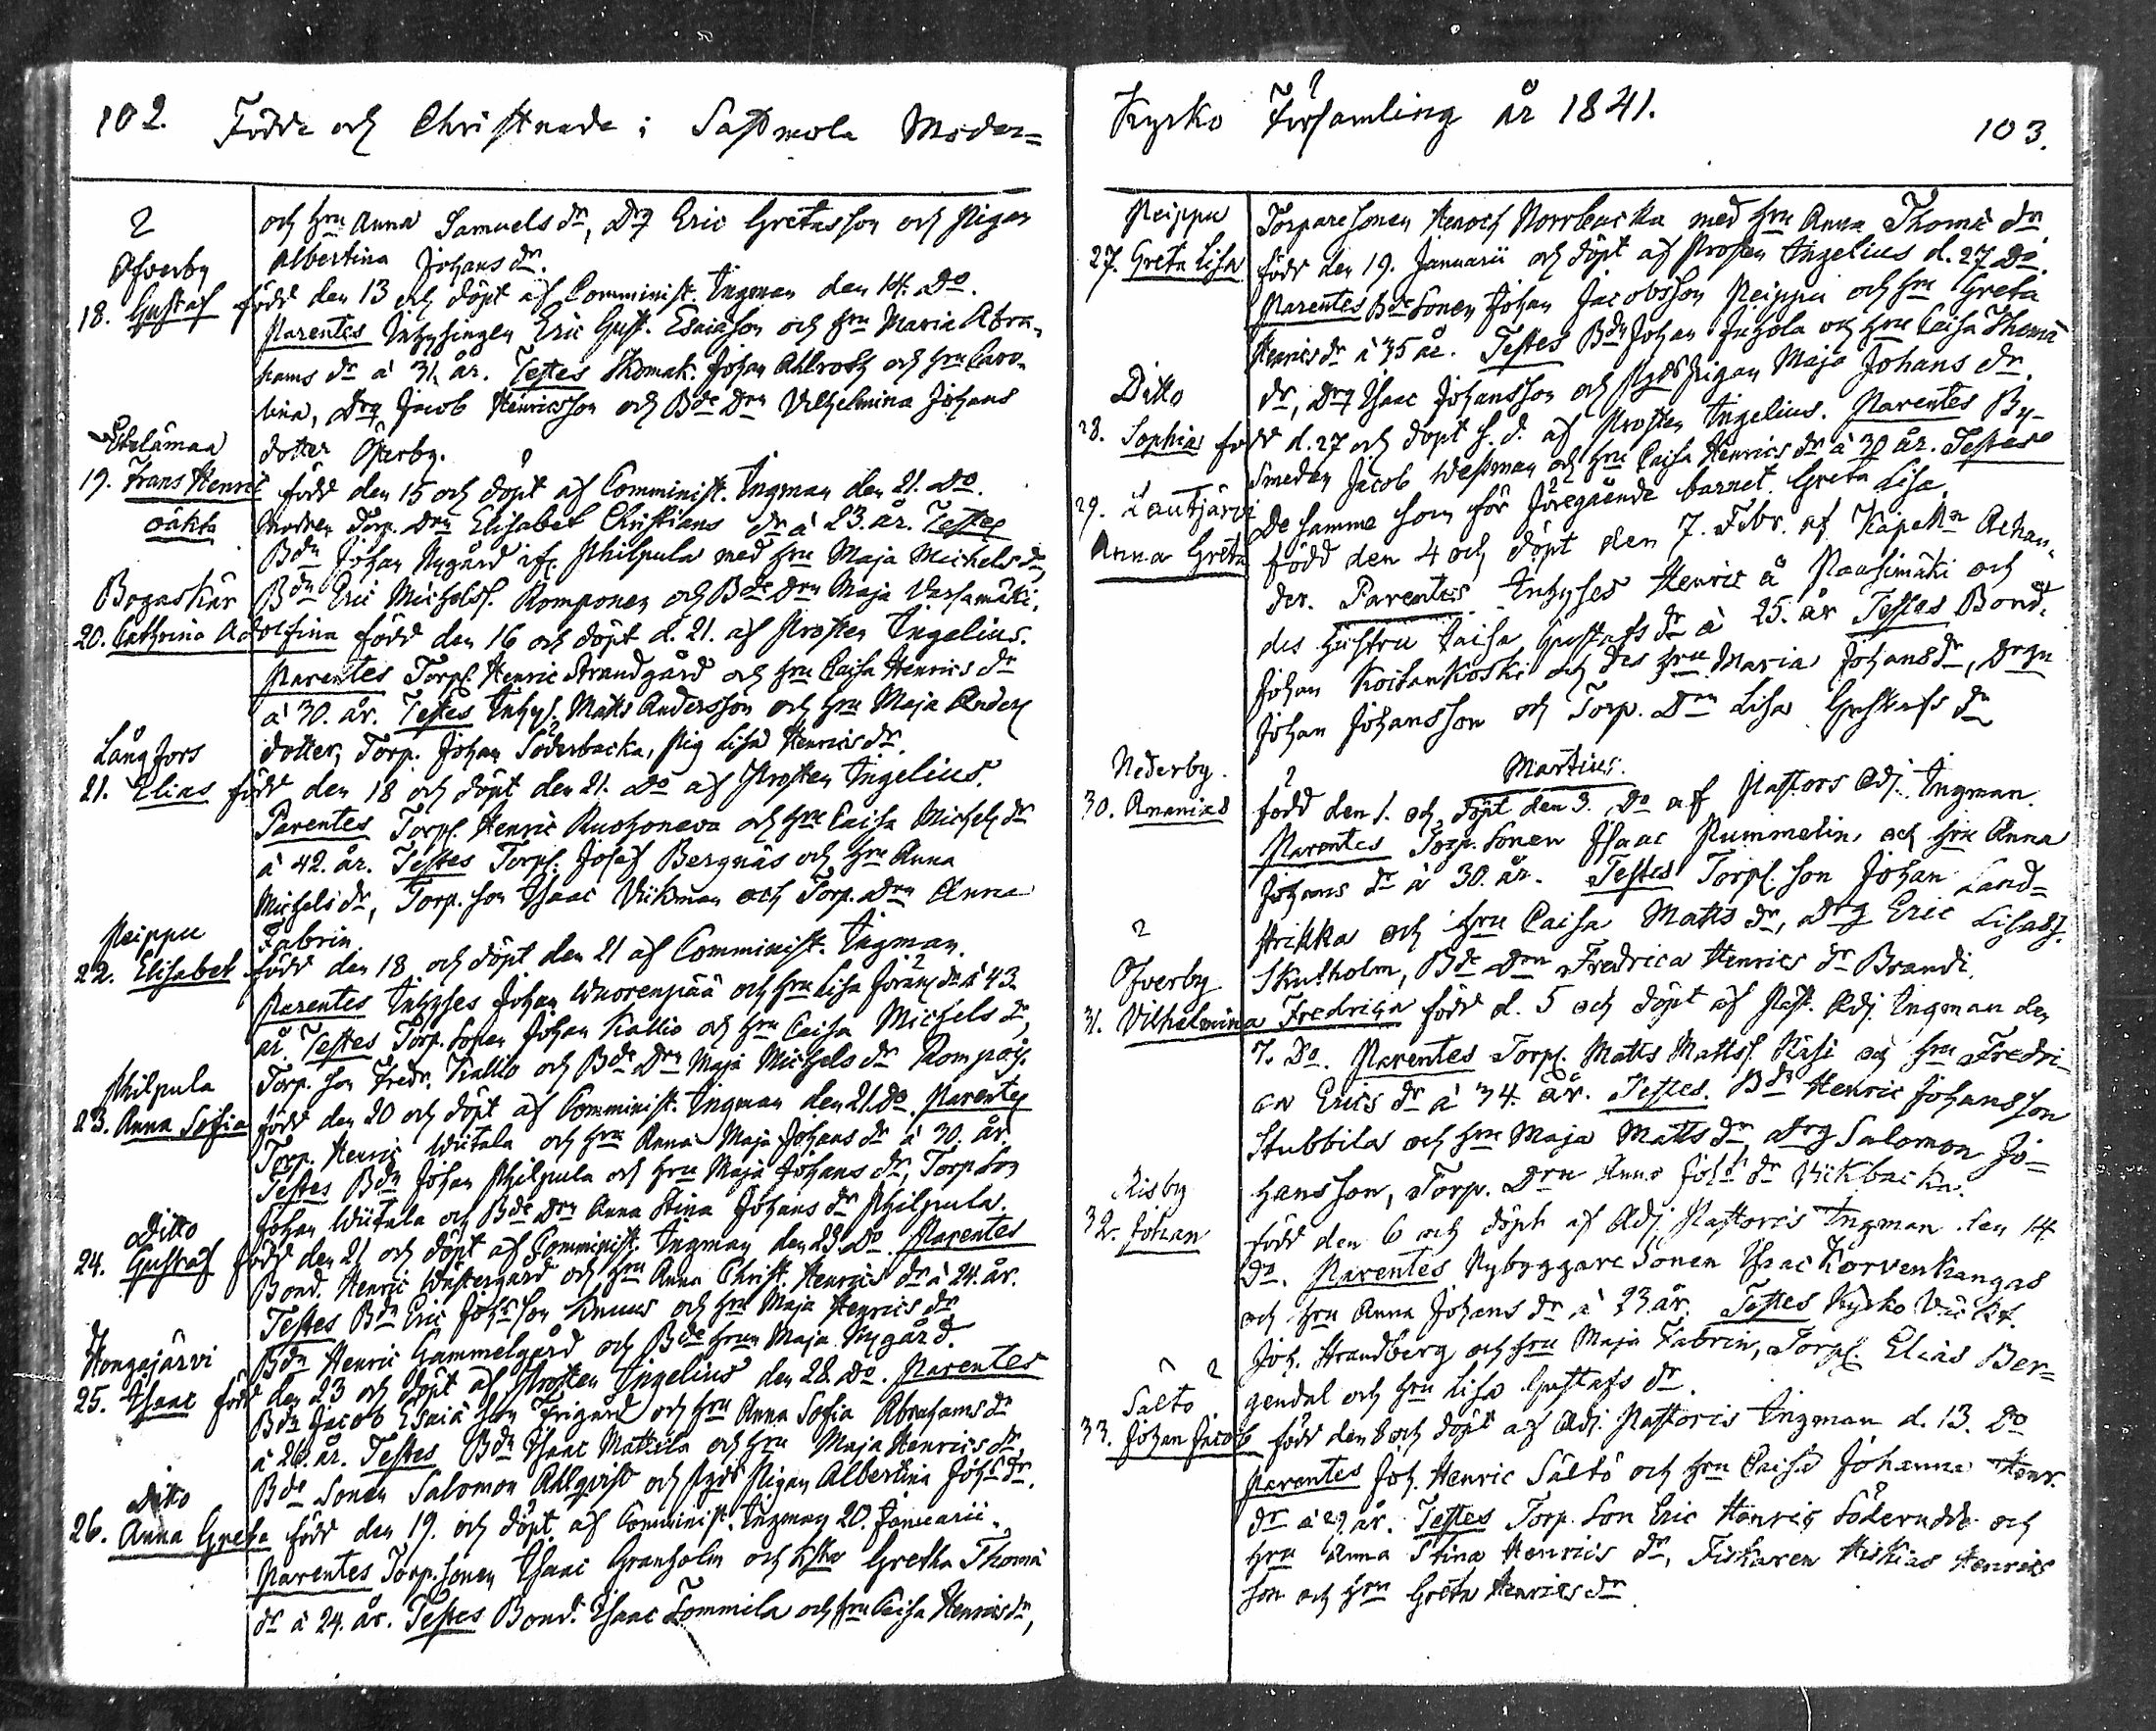 102. Födde och Christnade i Sastmola Moder=
och hru Anna Samuels dr, Drg Eric Gretasson och Pigan
Albertina Johans dr.
Öfverby
18. Gustaf född den 13 och döpt af Comminist. Ingman den 14. Do.
Parentes Inhysingen Eric Gust. Esaiasson och hru Maria Abra-
hams dr à 31. år. Testes Skomak. Johan Ahlroth och hru Caro-
lina, Drg Jacob Henricsson och Bde Drn Vilhelmina Johans
dotter Öfverby.
Etelämaa
19. Frans Henric född den 15 och döpt af Comminist. Ingman den 21. Do.
oäkta Modren Torp. Drn Elisabet Christians dr à 23. år. Testes
Bdn Johan Nygård af Philpula med hru Maja Michels dr,
Bdn Eric Michelss. Romponen och Bde Drn Maja Varsamäki.
Bogaskär
20. Cathrina Adolfina född den 16 och döpt d. 21. af Prosten Ingelius.
Parentes Torp. Henric Strandgård och hru Caisa Henrics dr
à 30. år. Testes Inhys. Matts Andersson och hru Maja Anders
dotter, Torp. Johan Söderbacka, Pig Lisa Henrics dr.
Långfors
21. Elias född den 18 och döpt den 21. Do af Prosten Ingelius.
Parentes Torp. Henric Ruohoneva och hru Caisa Michels dr
à 42. år. Testes Torp. Josef Bergnäs och hru Anna
Michels dr, Torp. son Isaac Vikman och Torp. Drn Anna
Fabrin.
Peippu
22. Elisabet född den 18 och döpt den 21 af Comminist. Ingman.
Parentes Inhyses Johan Wuorenpää och hru Lisa Jörans dr à 43.
år. Testes Torp. Sonen Johan Kallio och hru Caisa Michels dr,
Torp. son Fredr. Kallio och Bde Drn Maja Michels dr Rompois.
Philpula
23. Anna Sofia född den 20 och döpt af Comminist. Ingman den 21. Do. Parentes
Torp. Henric Wiitala och hru Anna Maja Johans dr à 30. år.
Testes Bdn Johan Philpula och hru Maja Johans dr, Torp Son
Johan Wiitala och Bde Drn Anna Stina Johans dr Philpula.
Ditto
24. Gustaf född den 21 och döpt af Comminist. Ingman den 23. Do. Parentes
Bond. Henric Wästergård och hru Anna Christ. Henrics dr à 24. år.
Testes Bdn Eric Johs son Knuus och hru Maja Henrics dr
Bdn Henric Gammelgård och Bde hrun Maja Nygård.
Hongajärvi
25. Isaac född den 23 och döpt af Prosten Ingelius den 28. Do. Parentes
Bdn Jacob Esaiæ son Frigård och hru Anna Sofia Abrahams dr
à 26. år. Testes Bdn Isaac Mattila och hru Maja Henrics dr,
Bde Sonen Salomon Ahlqvist och Pigan Albertina Johs dr.
Ditto
26. Anna Greta född den 19. och döpt af Comminist. Ingman 20. Januarii.
Parentes Torp. sonen Isaac Granholm och Gretha Thomæ
dr à 24. år. Testes Bond. Isaac Tommila och hru Caisa Henrics dr,
Kyrko Församling år 1841. 103.
Peippu Torparesonen Henoch Norrbacka med hru Anna Thomæ dr.
27. Greta Lisa född den 19. Januarii och döpt af Prosten Ingelius d. 27 Do.
Parentes Bde Sonen Johan Jacobsson Peippu och hru Greta
Henrics dr à 35 år. Testes Bdn Johan Juhola och hru Caisa Thomæ
dr, Drg Isaac Johansson och Pigan Maja Johans dr.
Ditto
28. Sophia född d. 27 och döpt s. d. af Prosten Ingelius. Parentes By-
smeden Jacob Westman och hru Caisa Henrics dr à 30 år. Testes
De samme som för föregående barnet Greta Lisa.
29. Lautjärvi
Anna Greta född den 4 och döpt den 7. Febr. af Kapelln Achan-
der. Parentes Inhyses Henric å Pausimäki och
des hustru Caisa Gustafs dr à 25. år Testes Bond.
Johan Koitankoski och des hru Maria Johans dr, Drgn
Johan Johansson och Torp. Drn Lisa Gustafs dr
Martius.
Nederby.
30. Ananias född den 1. och döpt den 3. Do af Pastors Adj. Ingman.
Parentes Torp. Sonen Isaac Pummelin, och hru Anna
Johans dr à 30. år. Testes Torp. son Johan Land-
strikka och hru Caisa Matts dr, Drg Eric Lisass.
Skutholm, Bde Drn Fredrica Henrics dr Brandi.
Öfverby
31. Vilhelmina Fredrica född d. 5 och döpt af Past. Adj. Ingman den
7. Do. Parentes Torp. Matts Mattss. Räsi och hru Fredri-
ca Erics dr à 34. år. Testes. Bdn Henric Johansson
Stubbila och hru Maja Matts dr, Drg Salomon Jo-
hansson, Torp. Drn Anna Johs dr Vickbacka.
Risby
32. Johan född den 6 och döpt af Adj. Pastoris Ingman den 14
Do. Parentes Nybyggare Sonen Isac Korvenkangas
och hru Anna Johans dr à 23 år. Testes Kyrko Väckt.
Joh. Strandberg och hru Maja Fabrin, Torp. Elias Ber-
gendal och hru Lisa Gustafs dr.
Sältö
33. Johan Jacob född den 8 och döpt af Adj. Pastoris Ingman d. 13. Do
Parentes Joh. Henric Sältö och hru Caisa Johanna Henr.
dr à 29 år. Testes Torp. Son Eric Henrics Söderudde och
hru Anna Stina Henrics dr, Fiskaren Hiskias Henrics
son och hru Greta Henrics dr.